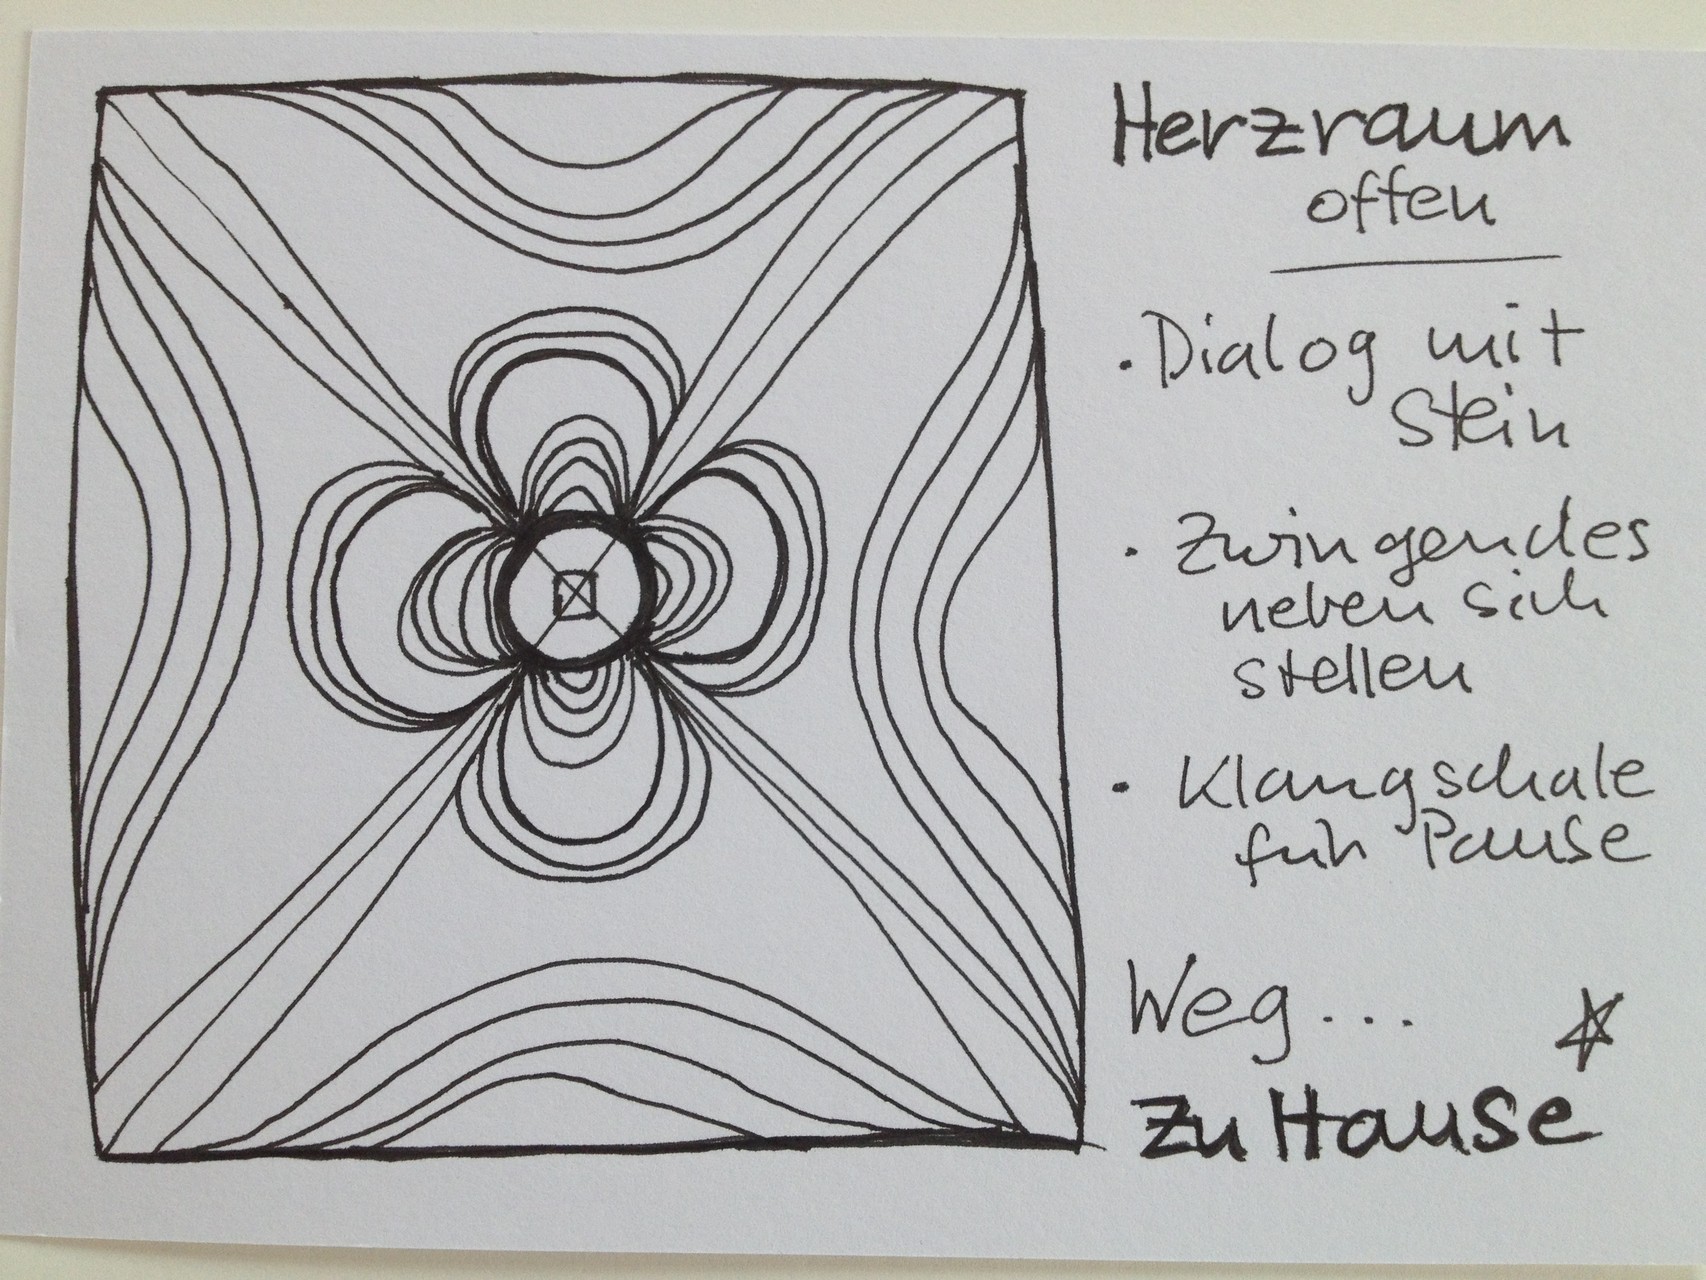 Herzraum
offen
· Dialog mit
Stein
· Zwingendes
neben sich
stellen
· Klangschale
für Pause
Weg...
Zu Hause